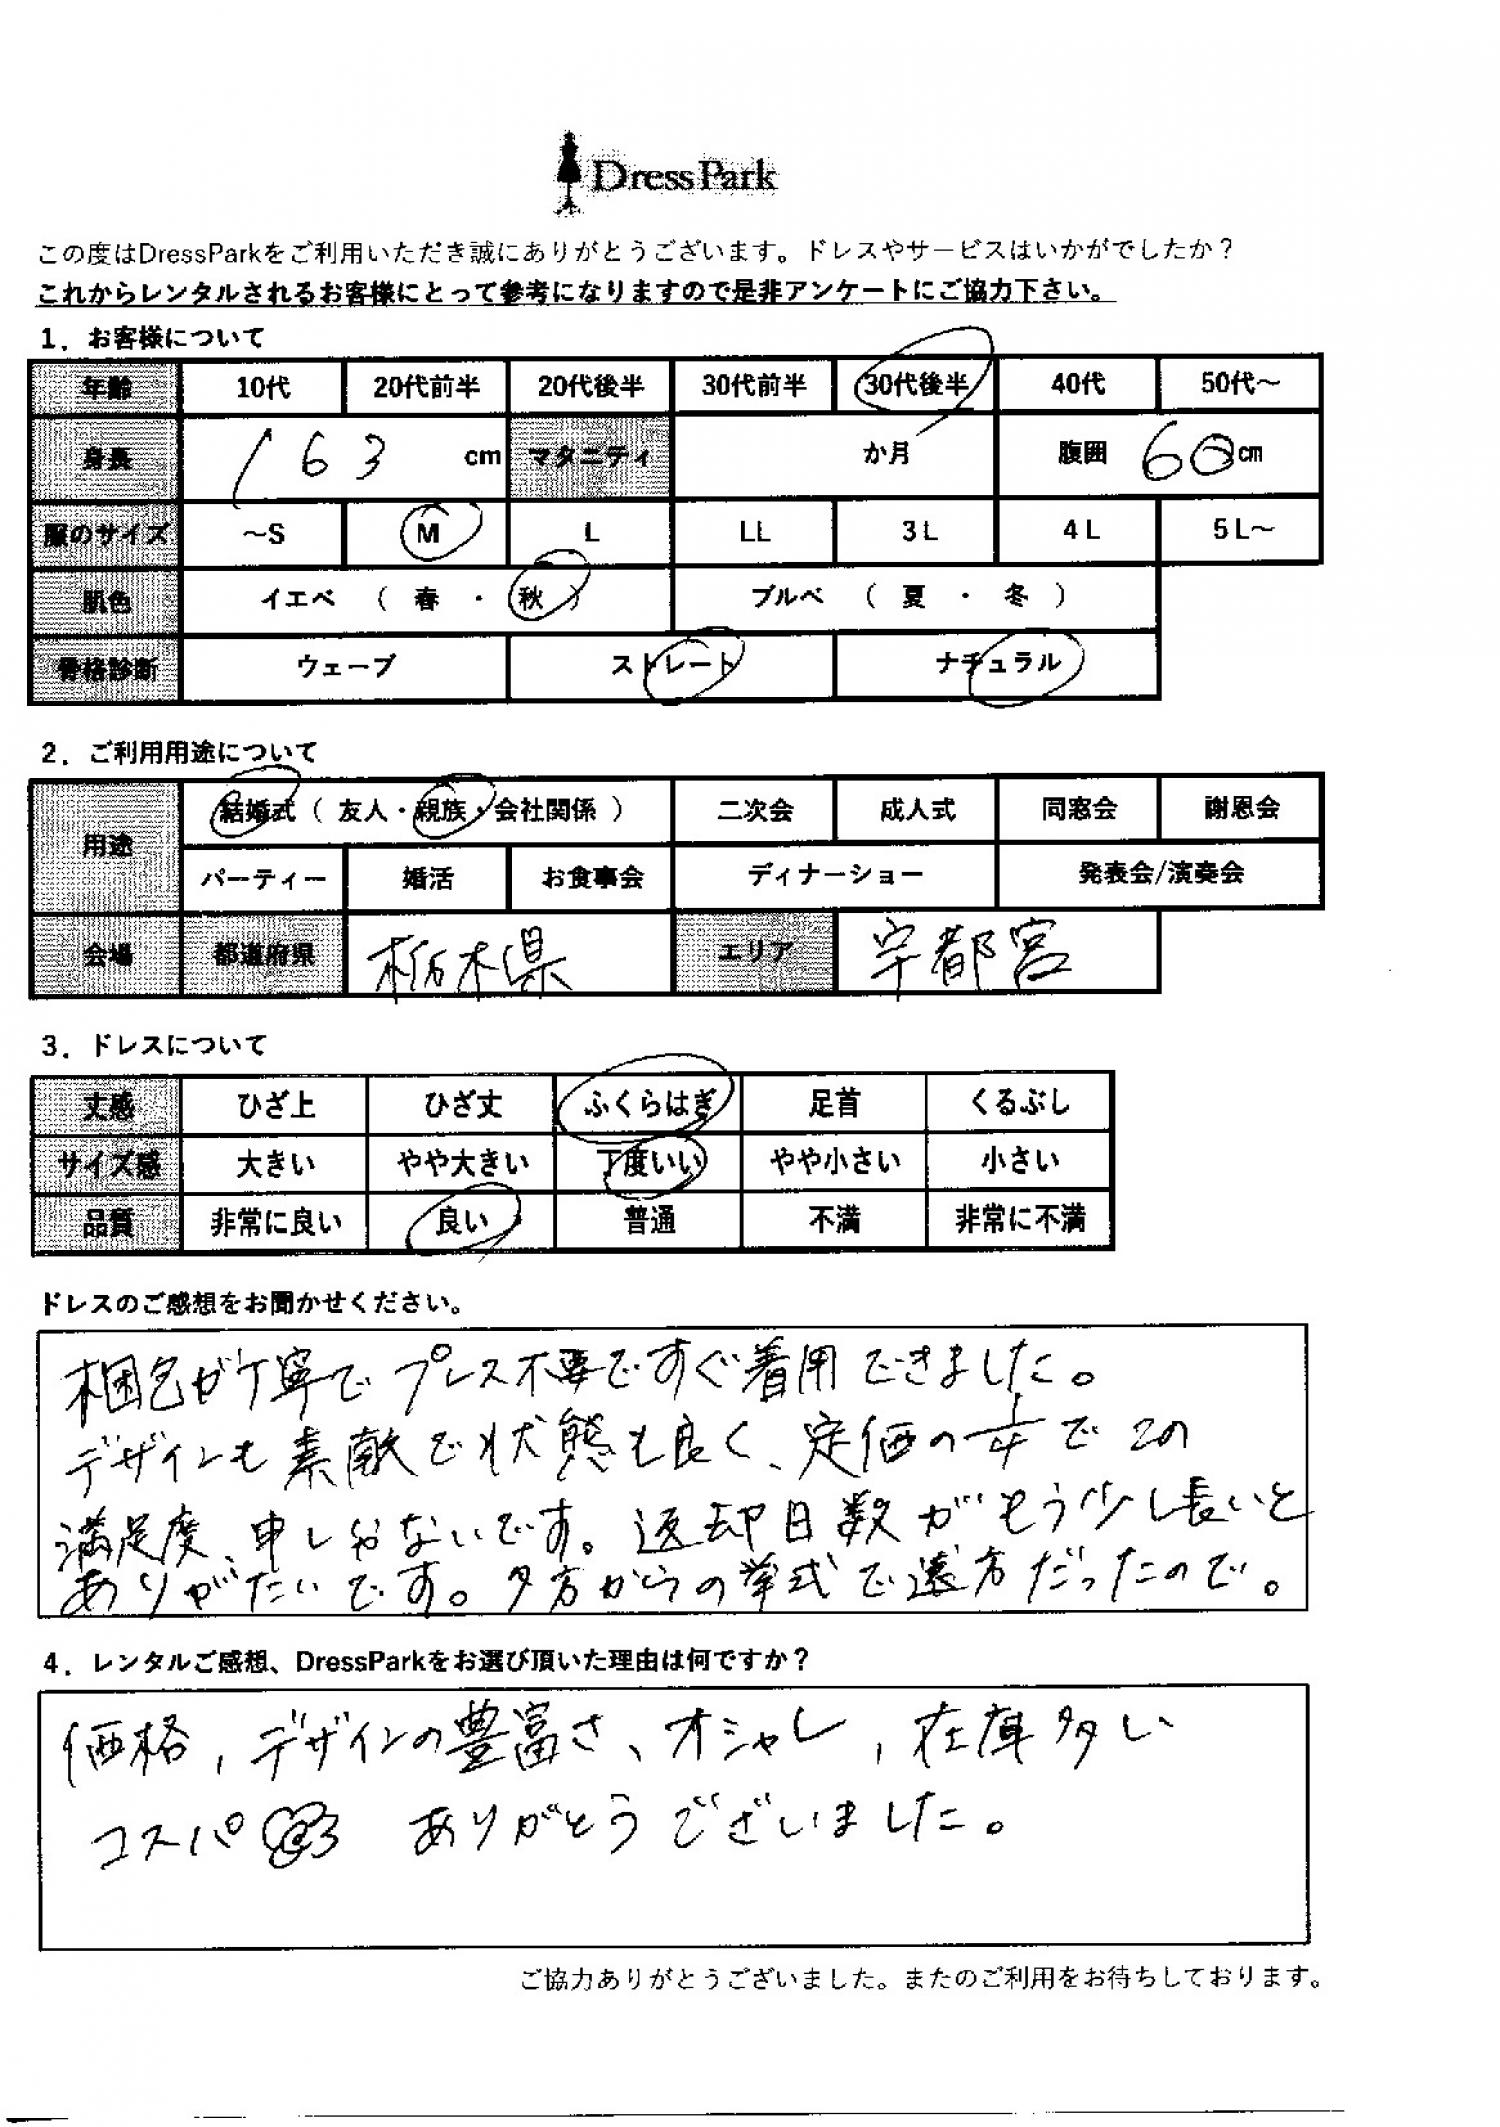 DressPark
この度はDressParkをご利用いただき誠にありがとうございます。ドレスやサービスはいかがでしたか？
これからレンタルされるお客様にとって参考になりますので是非アンケートにご協力下さい。
1．お客様について
年齢 10代 20代前半 20代後半 30代前半 30代後半 40代 50代～
身長 163 cm マタニティ か月 腹囲 60 cm
服のサイズ ～S M L LL 3L 4L 5L～
肌色 イエベ （ 春 ・ 秋 ） ブルベ （ 夏 ・ 冬 ）
骨格診断 ウェーブ ストレート ナチュラル
2．ご利用用途について
用途 結婚式（ 友人・親族・会社関係 ） 二次会 成人式 同窓会 謝恩会
パーティー 婚活 お食事会 ディナーショー 発表会/演奏会
会場 都道府県 栃木県 エリア 宇都宮
3．ドレスについて
丈感 ひざ上 ひざ丈 ふくらはぎ 足首 くるぶし
サイズ感 大きい やや大きい 丁度いい やや小さい 小さい
品質 非常に良い 良い 普通 不満 非常に不満
ドレスのご感想をお聞かせください。
梱包が丁寧でプレス不要ですぐ着用できました。
デザインも素敵で状態も良く、定価の で この
満足度、申し分ないです。返却日数がもう少し長いと
ありがたいです。夕方からの挙式で遠方だったので。
4．レンタルご感想、DressParkをお選び頂いた理由は何ですか？
価格，デザインの豊富さ、オシャレ，在庫多い
コスパ ありがとうございました。
ご協力ありがとうございました。またのご利用をお待ちしております。